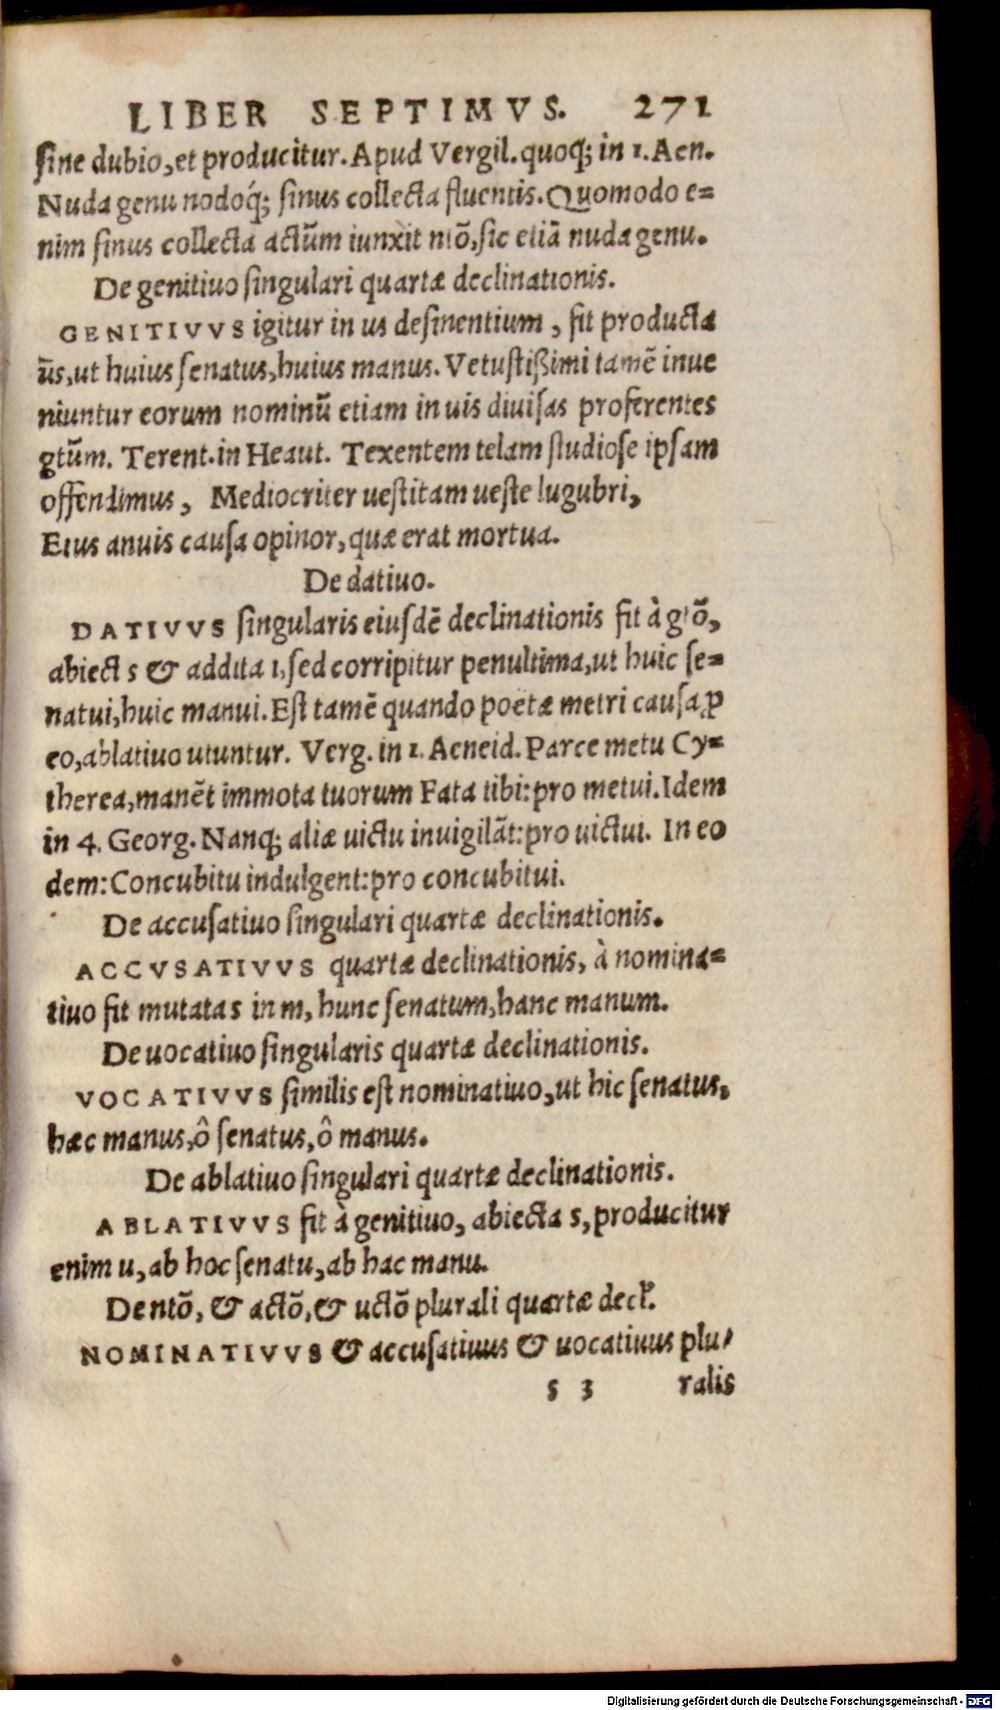 LIBER SEPTIMVS. 271
sine dubio, et producitur. Apud Vergil. quoq; in 1. Aen.
Nuda genu nodoq́; sinus collecta fluentis. Quomodo e=
nim sinus collecta actūm iunxit ntō, sic etiā nuda genu.
De genitiuo singulari quartæ declinationis.
GENITIVVS igitur in us desinentium, fit producta
ūs, ut huius senatus, huius manus. Vetustißimi tamē inue
niuntur eorum nominū etiam in uis diuisas proferentes
gtūm. Terent. in Heaut. Texentem telam studiose ipsam
offendimus, Mediocriter uestitam ueste lugubri,
Eius anuis causa opinor, quæ erat mortua.
De datiuo.
DATIVVS singularis eiusdē declinationis fit à gtō,
abiect s & addita i, sed corripitur penultima, ut huic se=
natui, huic manui. Est tamē quando poëtæ metri causa ꝓ
eo, ablatiuo utuntur. Verg. in 1. Aeneid. Parce metu Cy=
therea, manēt immota tuorum Fata tibi: pro metui. Idem
in 4. Georg. Nanq; aliæ uictu inuigilāt: pro uictui. In eo
dem: Concubitu indulgent: pro concubitui.
De accusatiuo singulari quartæ declinationis.
ACCVSATIVVS quartæ declinationis, à nomina=
tiuo fit mutata s in m, hunc senatum, hanc manum.
De uocatiuo singularis quartæ declinationis.
VOCATIVVS similis est nominatiuo, ut hic senatus,
hæc manus, ô senatus, ô manus.
De ablatiuo singulari quartæ declinationis.
ABLATIVVS fit à genitiuo, abiecta s, producitur
enim u, ab hoc senatu, ab hac manu.
De ntō, & actō, & uctō plurali quartæ decl.
NOMINATIVVS & accusatiuus & uocatiuus plu-
s 3 ralis
Digitalisierung gefördert durch die Deutsche Forschungsgemeinschaft - DFG